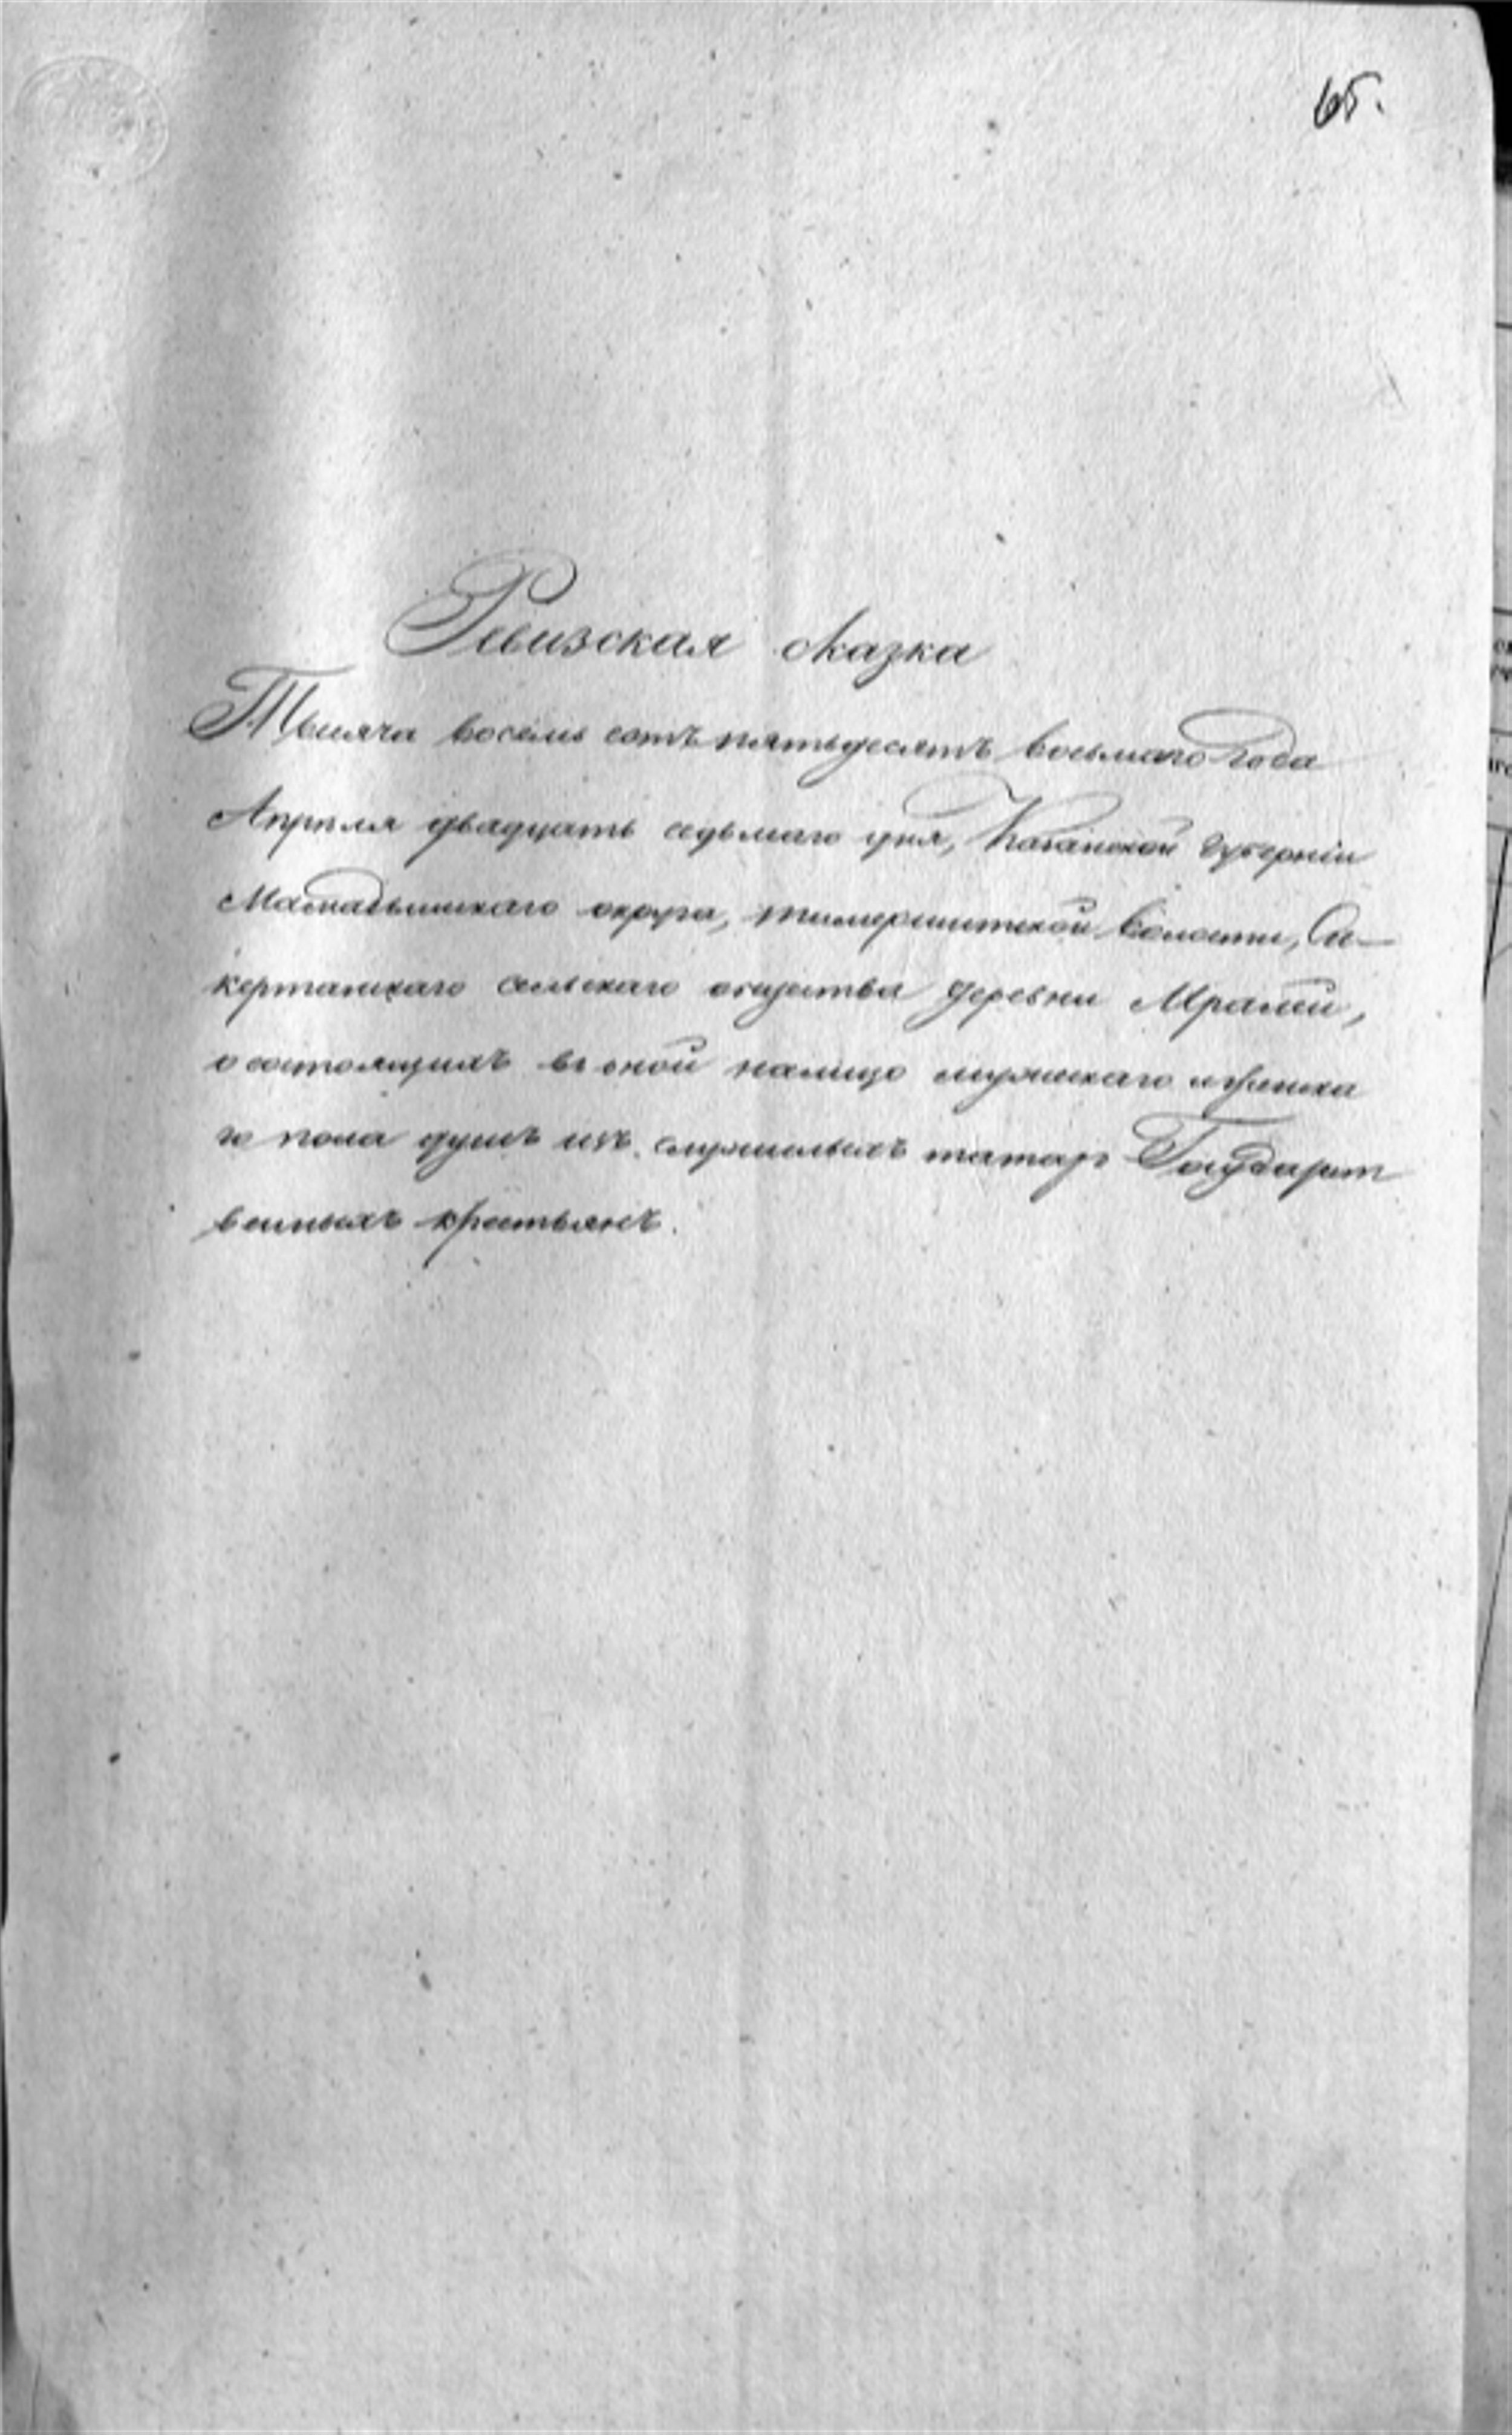 65.
Ревизская сказка
Тысяча восемь сотъ пятьдесятъ восьмаго года
Апреля двадцать седьмаго дня, Казанской губерніи
Мамадышскаго округа, тимершитской волости, Са-
кертанскаго сельскаго общества деревни
о состоящихъ въ оной налицо мужескаго и женска
го пола душъ изъ служилыхъ татаръ Государст
венныхъ крестьянъ.